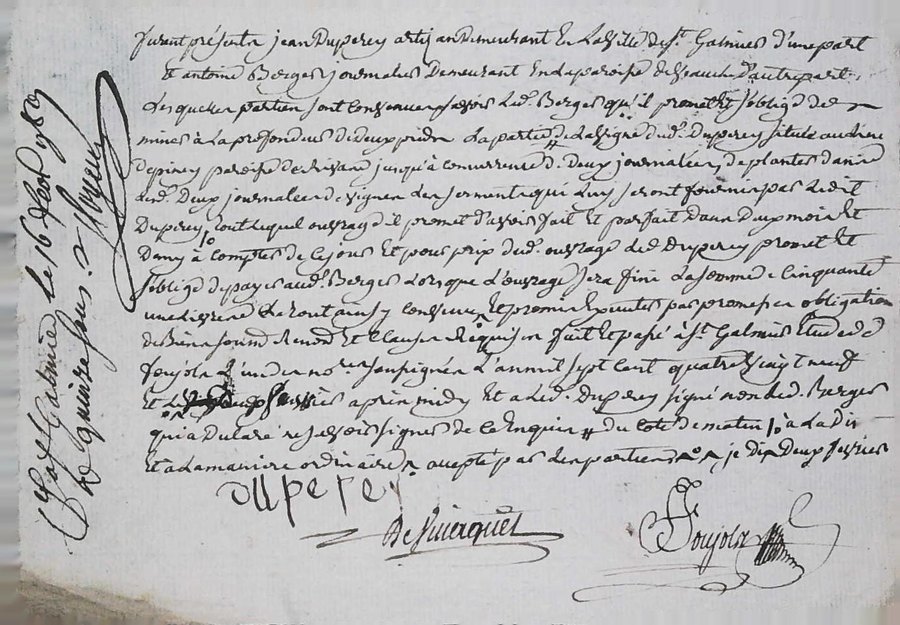 furent présents jean Duperey artizan demeurant En La ville de St. Galmier d'une part
Et antoine Berger journalier Demeurant En la paroisse de veauche d'autre part
Lesquelles parties sont convenues savoir led. Berger qu'il promet et s'oblige de
miner à La profondeur de deux pieds La partie de La vigne dud. Duperey située au lieu
de paroisse de jusqu'à concurrence de Deux journalées, de planter dans
lesd. Deux journalées de vignes des serments qui luy seront fournis par Ledit
Duperey, tout lequel ouvrage il promet d'avoir fait Et parfait dans Deux mois Et
Demy à compter de ce jour Et pour prix dud. ouvrage led. Duperey promet Et
s'oblige de payer aud. Berger Lorsque L'ouvrage sera fini La somme de Cinquante
une Livres Le tout ainsy convenu Et promis par promesse obligation
de Biens soum. renon. Et Clauses Requises fait Et passé à St. Galmier Etude de
Soujola L'un des no.res soussignés L'an mil sept cent quatre vingt neuf
Et Le février après midy Et a led. Duperey signé non led. Berger
qui a Déclaré ne savoir signer de ce Enquis # du coté de matin à La Dir
Et à La manière ordinaire accepté par les parties je dis Deux février
duperey
Soujola
Con.lé à St. Galmier le 16 1789
Rc quinze sous.